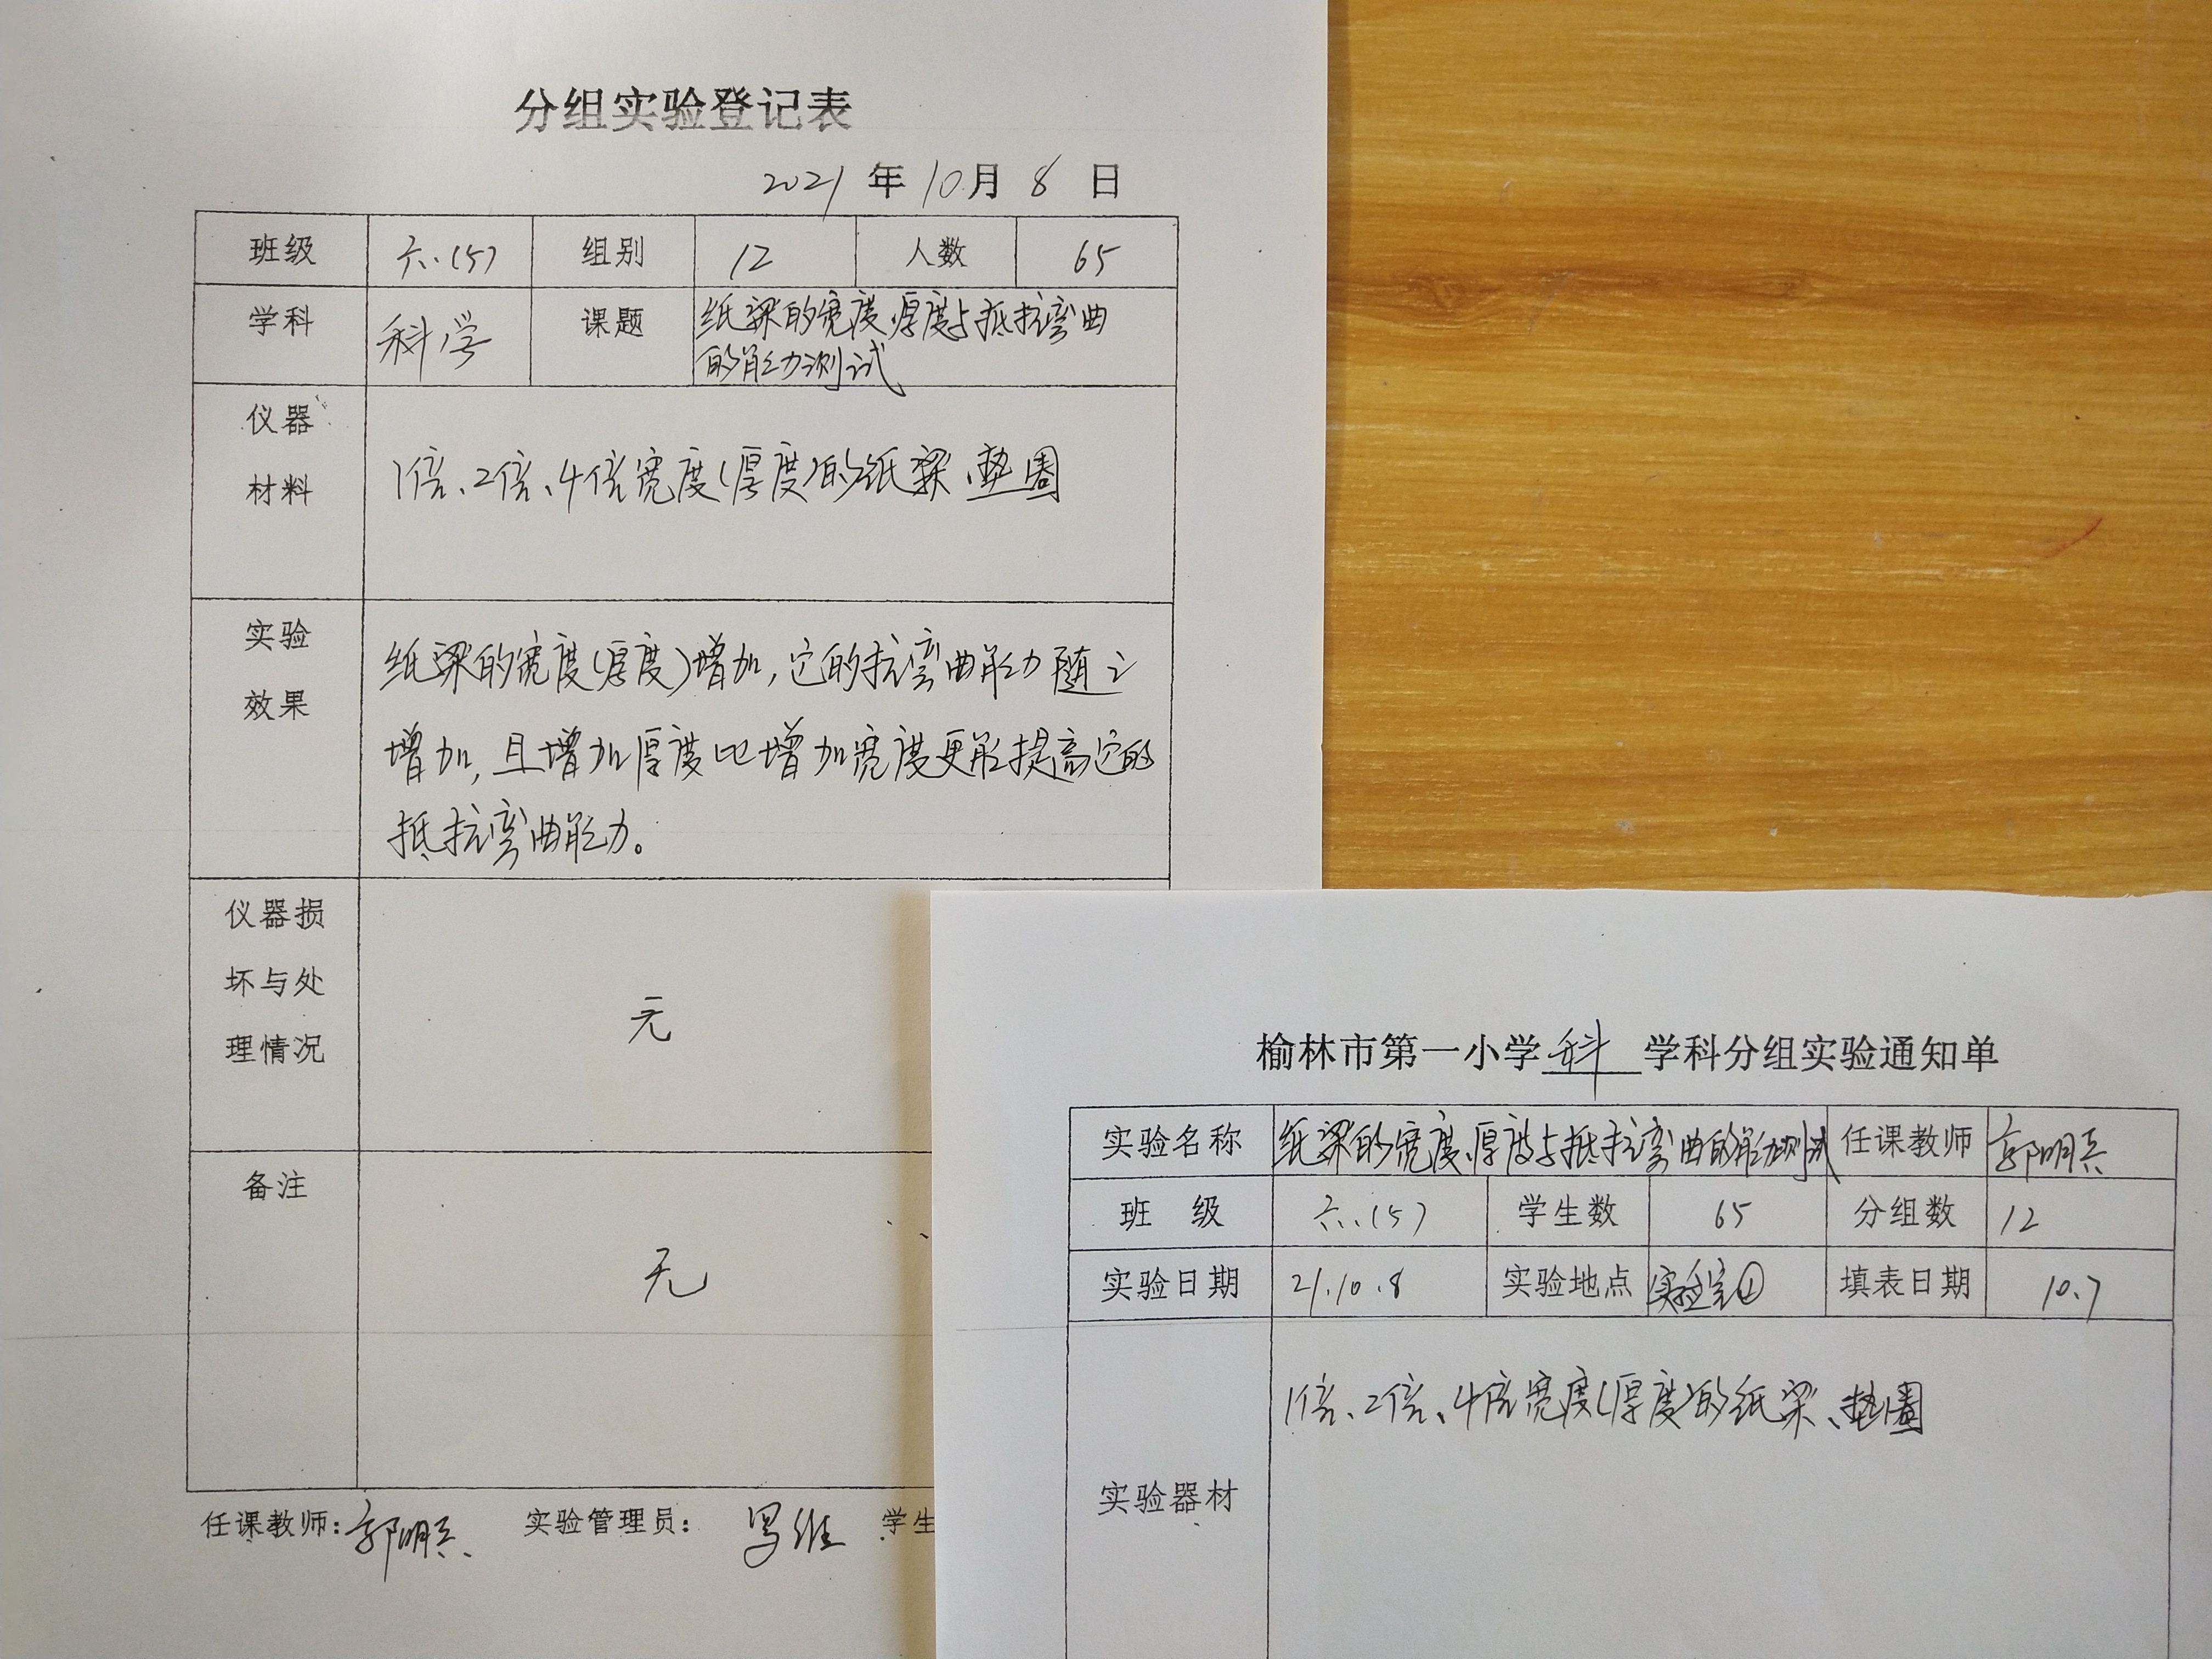 分组实验登记表
2021 年 10 月 8 日
班级 六.(5) 组别 12 人数 65
学科 科学 课题 纸梁的宽度、厚度与抵抗弯曲
的能力测试
仪器
材料
1倍、2倍、4倍宽度(厚度)的纸梁、垫圈
实验
效果
纸梁的宽度(厚度)增加,它的抗弯曲能力随之
增加,且增加厚度比增加宽度更能提高它的
抵抗弯曲能力。
仪器损
坏与处
理情况
无
备注
无
任课教师: 郭明兵 实验管理员: 学生
榆林市第一小学 科 学科分组实验通知单
实验名称 纸梁的宽度、厚度与抵抗弯曲的能力测试 任课教师 郭明兵
班 级 六.(5) 学生数 65 分组数 12
实验日期 21.10.8 实验地点 实验室① 填表日期 10.7
实验器材 1倍、2倍、4倍宽度(厚度)的纸梁、垫圈